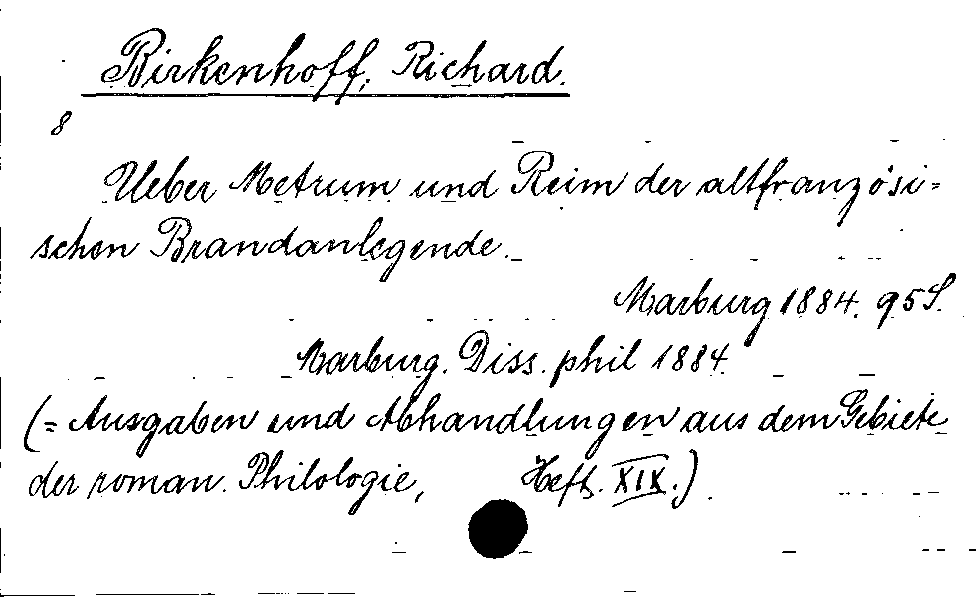 Birkenhoff, Richard.
8
Ueber Metrum und Reim der altfranzösi=
schen Brandanlegende.
Marburg 1884. 95 S.
Marburg. Diss. phil 1884.
(= Ausgaben und Abhandlungen aus dem Gebiete
der roman. Philologie, Heft. XIX.).